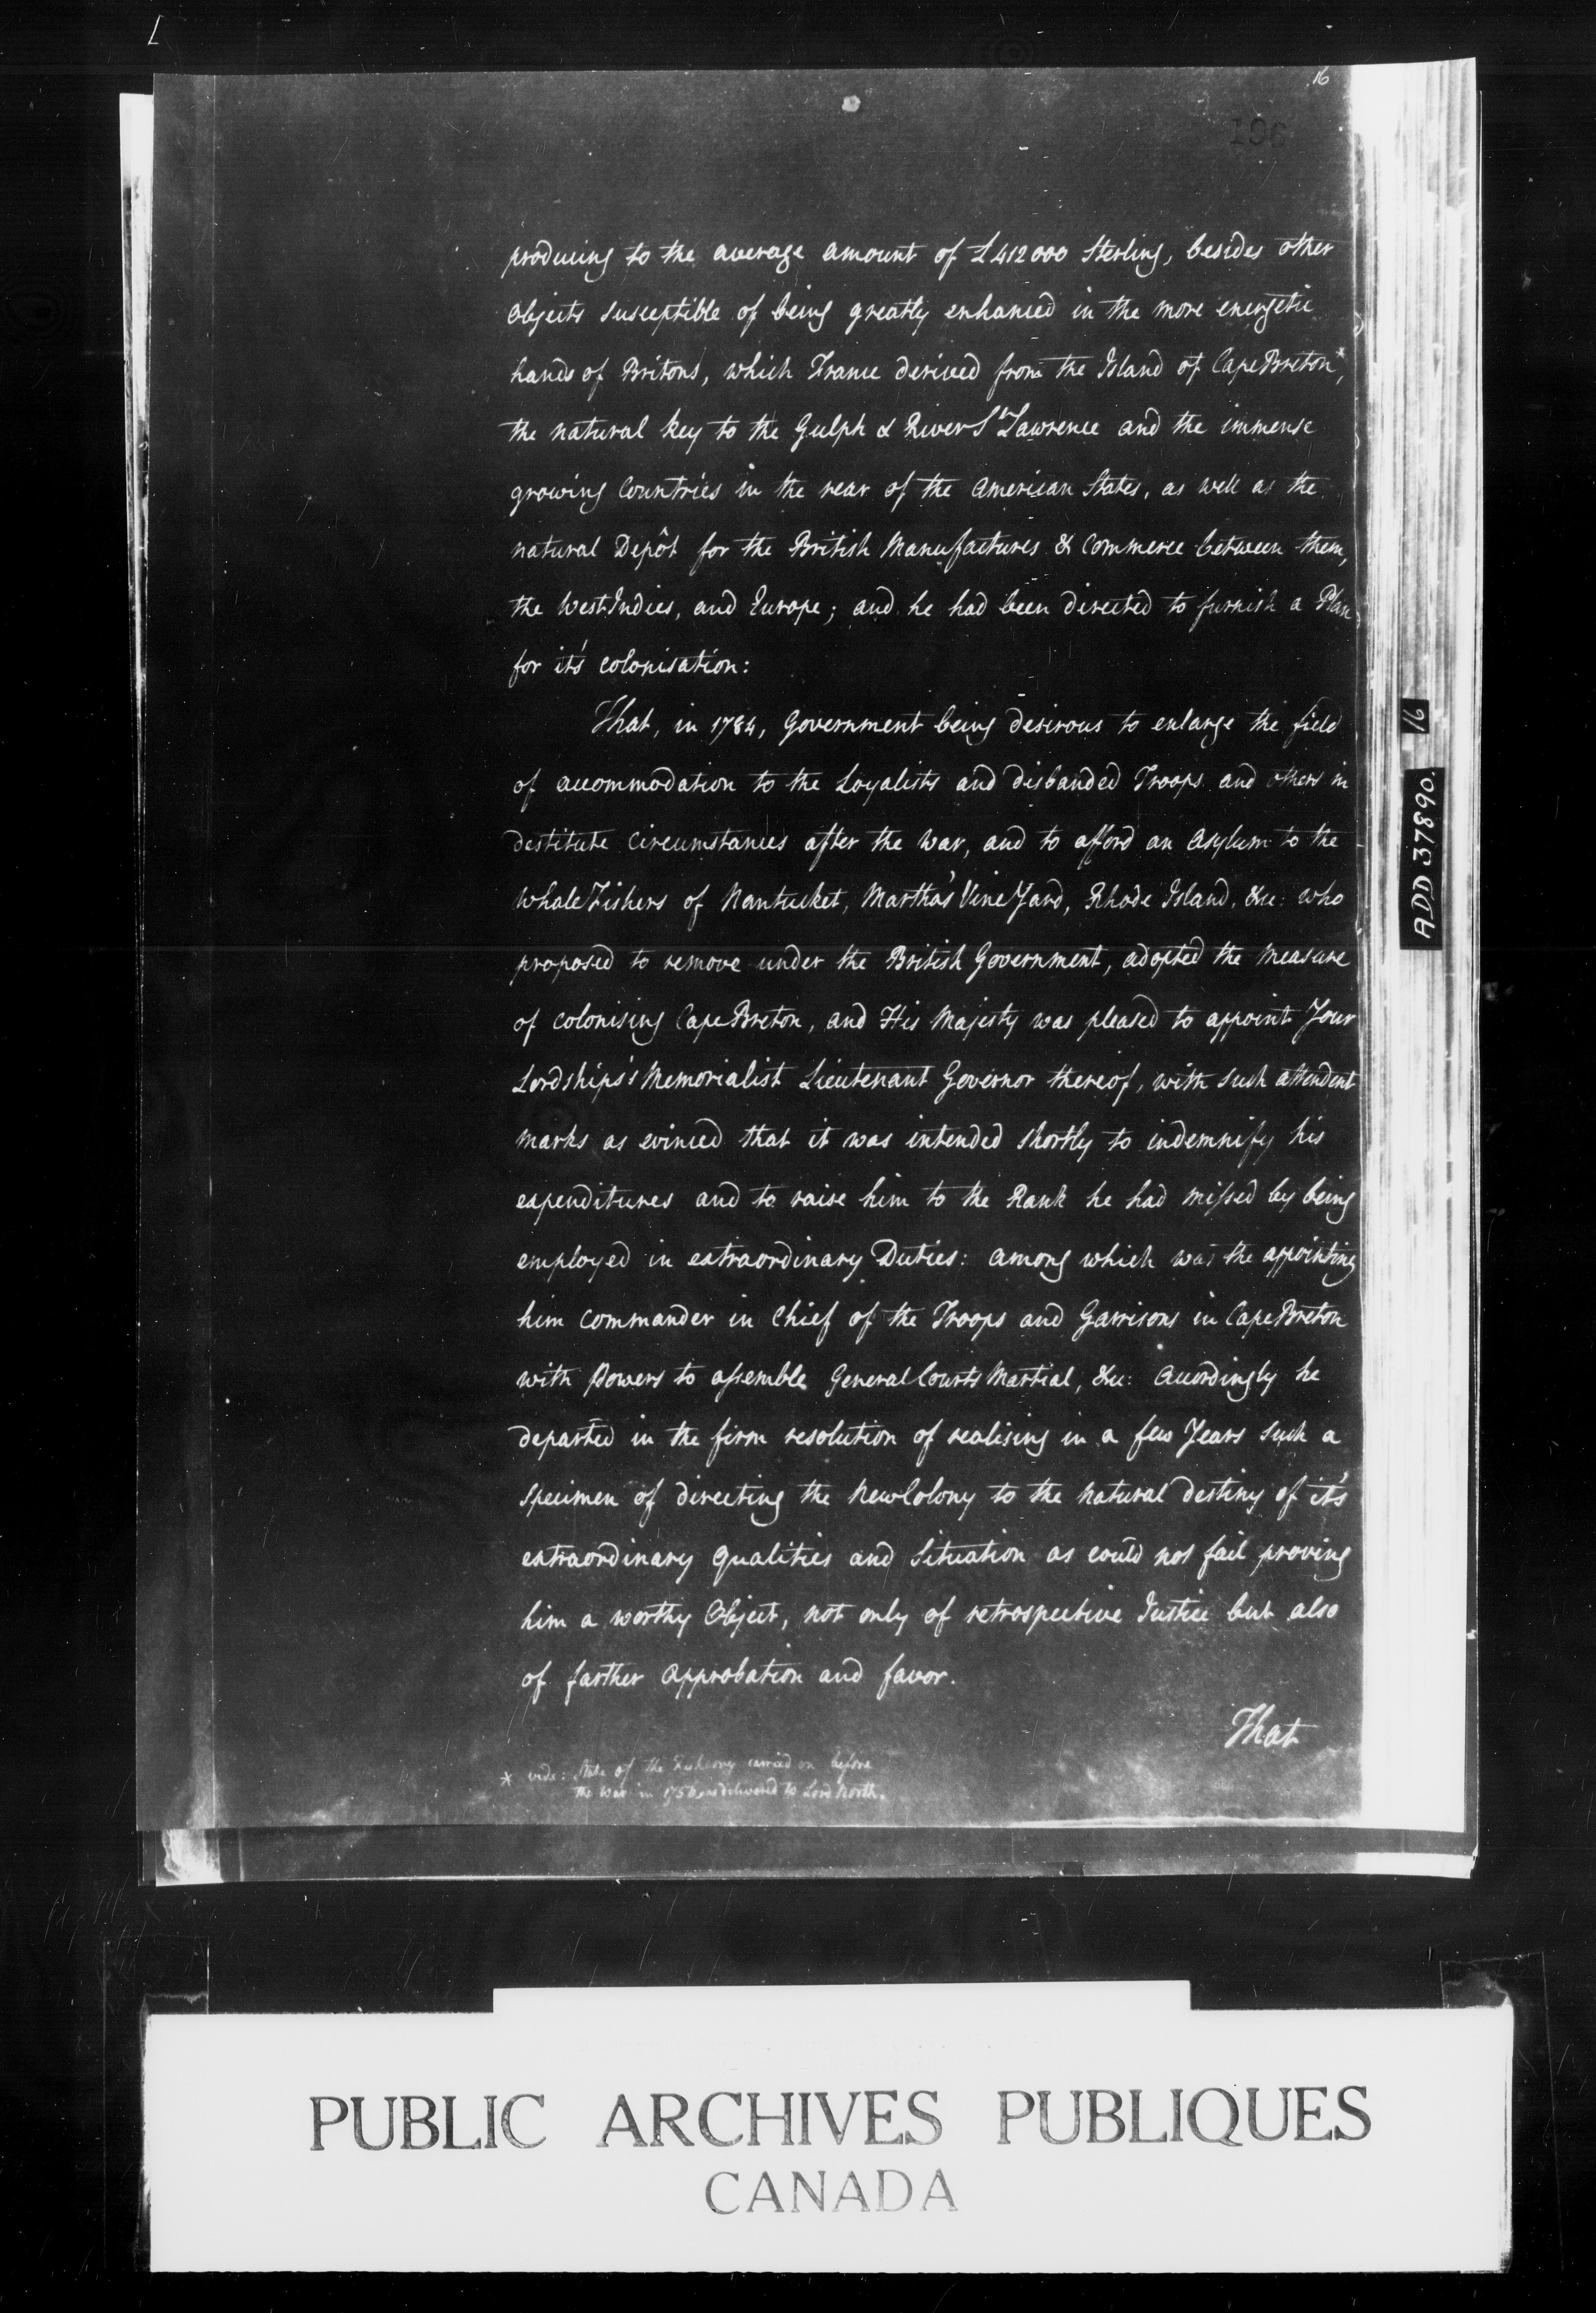 16
196
producing to the average amount of £412000 Sterling, besides other
objects susceptible of being greatly enhanced in the more energetic
hands of Britons, which France derived from the Island of Cape Breton*,
the natural key to the Gulph & River St Lawrence and the immense
growing Countries in the rear of the American States, as well as the
natural Depôt for the British Manufactures & Commerce between them,
the West Indies, and Europe; and he had been directed to furnish a Plan
for it's colonisation:
That, in 1784, Government being desirous to enlarge the field
of accommodation to the Loyalists and disbanded Troops and others in
destitute Circumstances after the War, and to afford an Asylum to the
Whale Fishers of Nantucket, Martha's Vine Yard, Rhode Island, &c: who
proposed to remove under the British Government, adopted the Measure
of colonising Cape Breton, and His Majesty was pleased to appoint Your
Lordships's Memorialist Lieutenant Governor thereof, with such attendent
marks as evinced that it was intended shortly to indemnify his
expenditures and to raise him to the Rank he had missed by being
employed in extraordinary Duties: among which was the appointing
him Commander in Chief of the Troops and Garrisons in Cape Breton
with Powers to assemble General Courts Martial, &c: Accordingly he
departed in the firm resolution of realising in a few Years such a
Specimen of directing the New Colony to the natural destiny of it's
extraordinary Qualities and Situation as could not fail proving
him a worthy Object, not only of retrospective Justice but also
of farther Approbation and favor.
That
* vide: State of the Fishery carried on before
the War in 1756, as delivered to Lord North.
16
ADD 37890.
PUBLIC ARCHIVES PUBLIQUES
CANADA